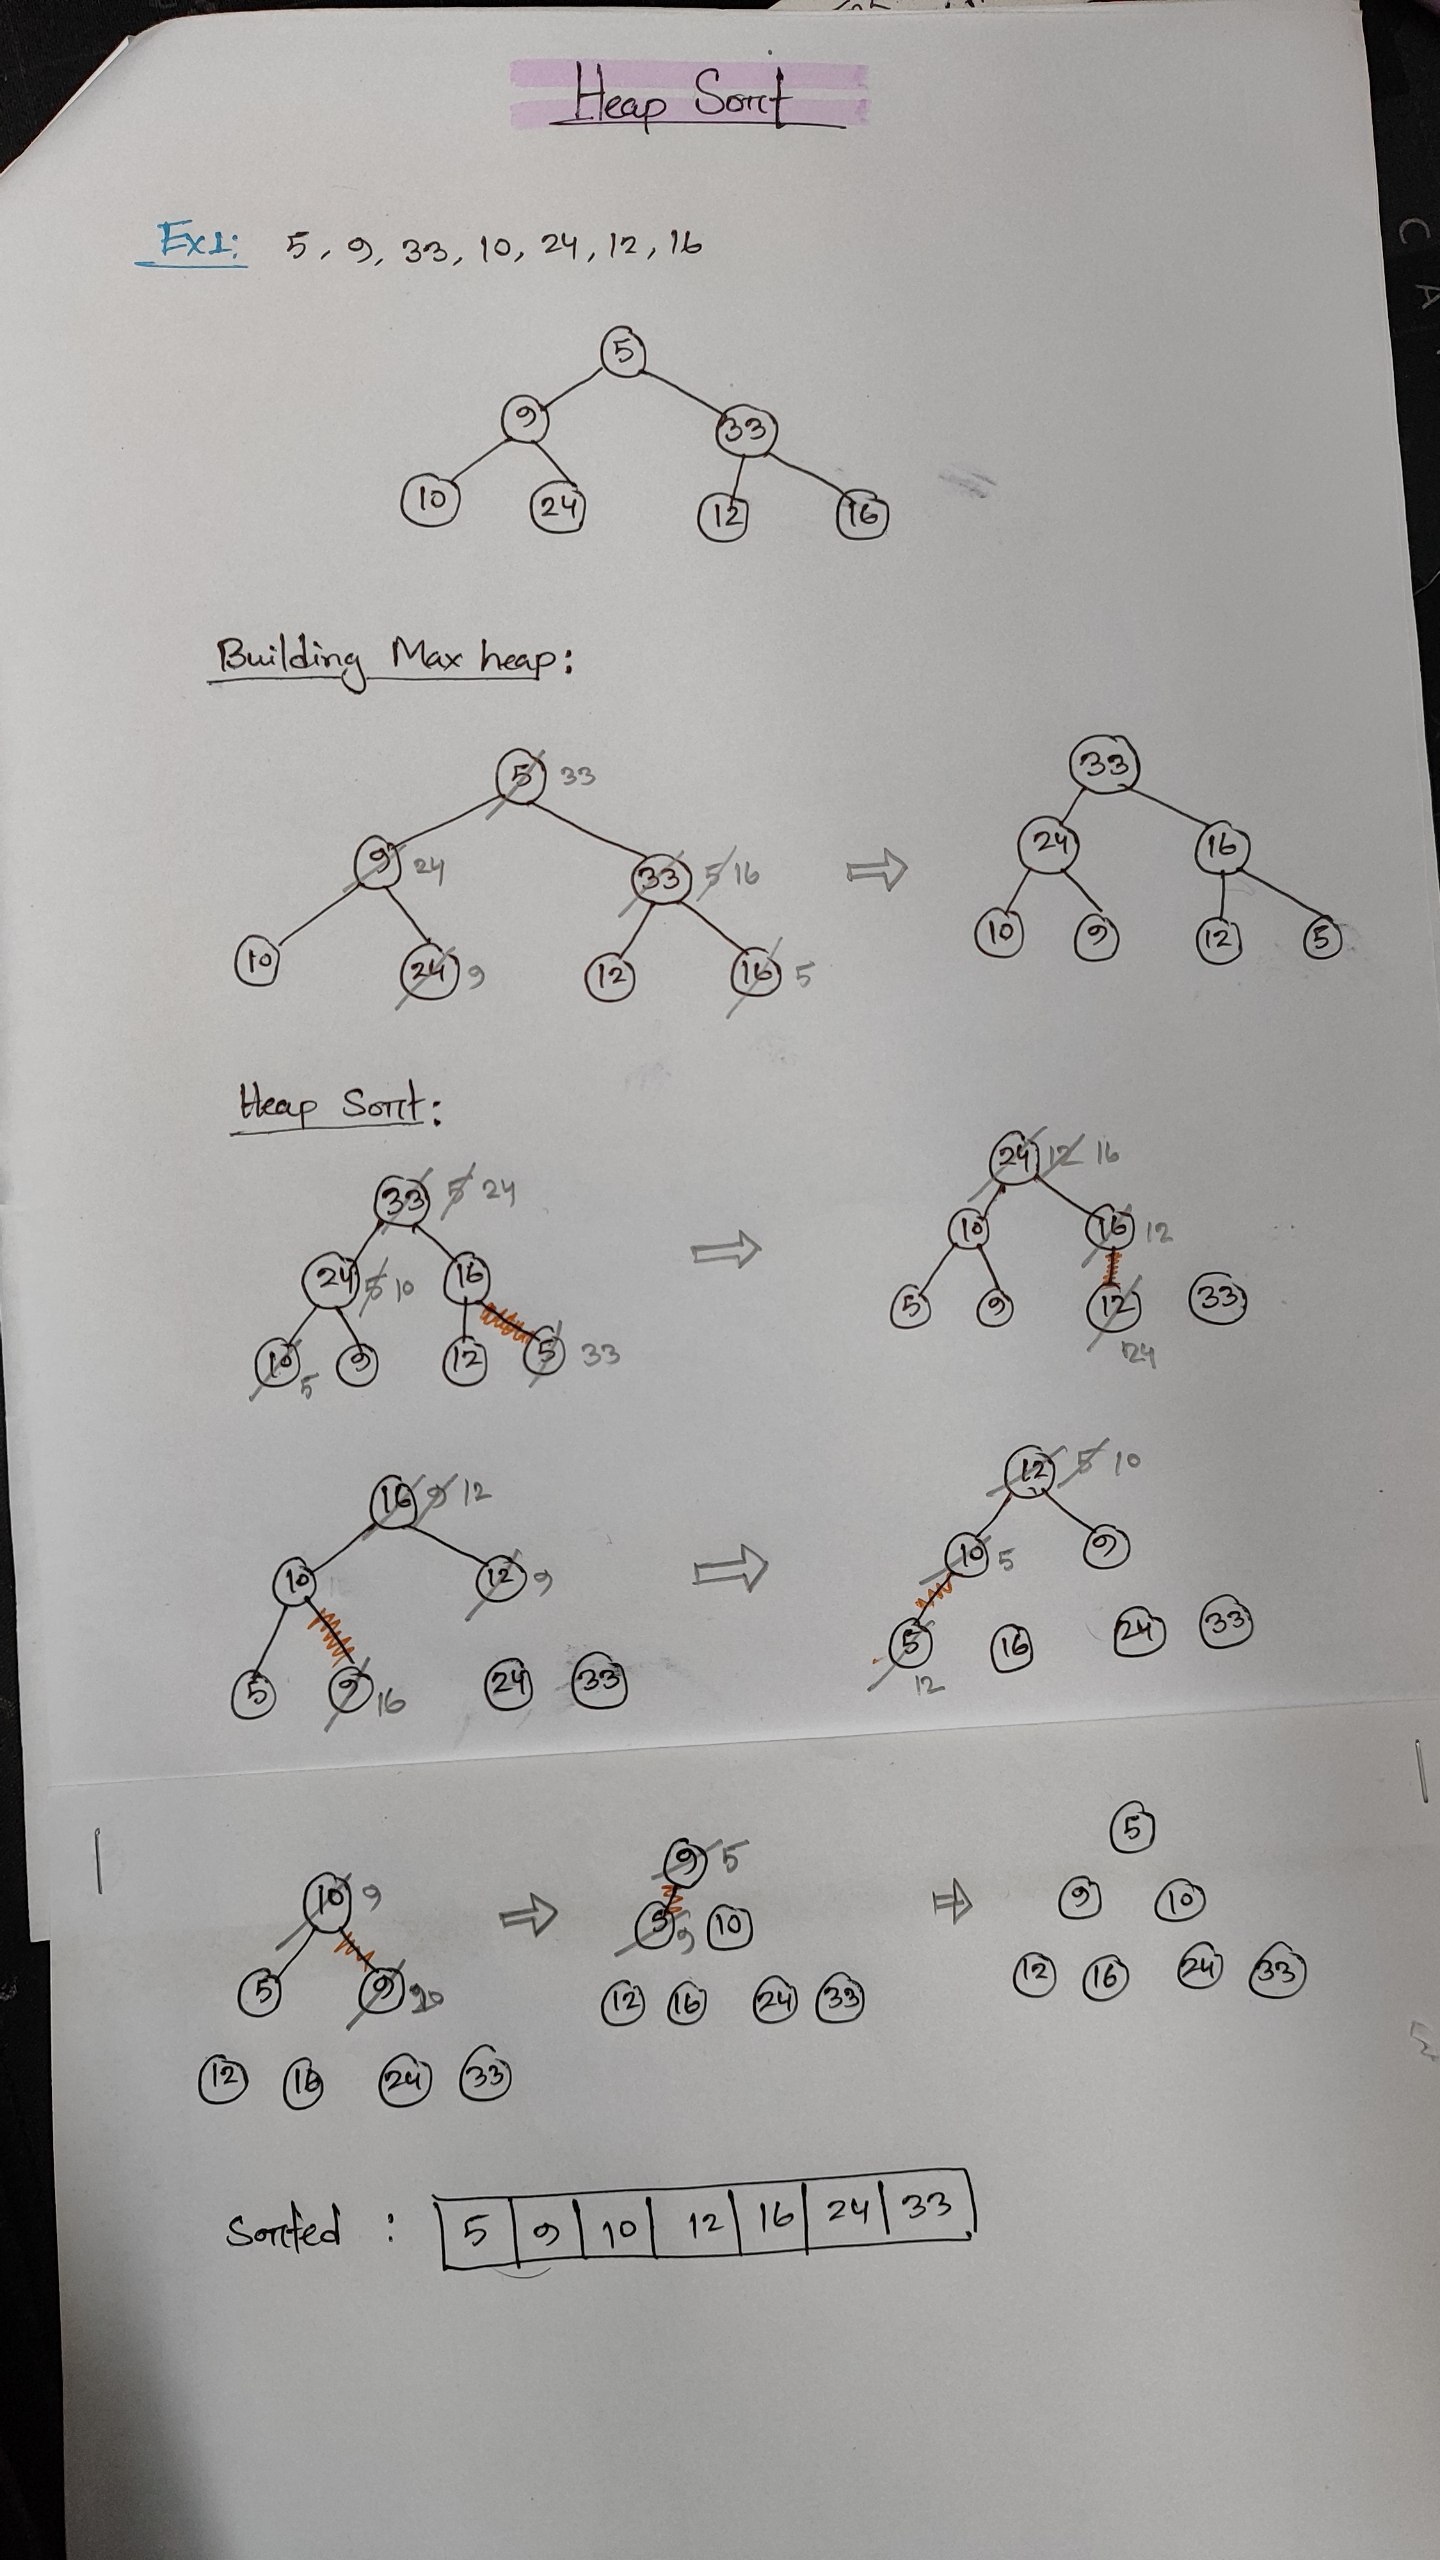 Heap Sort
Ex1: 5, 9, 33, 10, 24, 12, 16
5
9 33
10 24 12 16
Building Max heap:
5 33
9 24 33 5 16
10 24 9 12 16 5
33
24 16
10 9 12 5
Heap Sort:
33 5 24
24 5 10 16
10 5 9 12 5 33
24 12 16
10 16 12
5 9 12 24 33
16 9 12
10 12 9
5 9 16 24 33
12 5 10
10 5 9
5 12 16 24 33
10 9
5 9
12 16 24 33
9 5
5 9 10
12 16 24 33
5
9 10
12 16 24 33
Sorted : 5 9 10 12 16 24 33